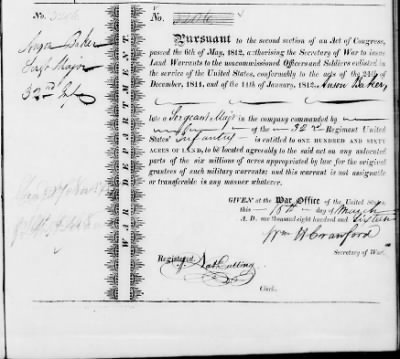 No.
No.
Anson Baker
Sergt Major
32nd Inf
WAR DEPARTMENT.
Pursuant to the second section of an Act of Congress,
passed the 6th of May, 1812, authorising the Secretary of War to issue
Land Warrants to the uncommissioned Officers and Soldiers enlisted in
the service of the United States, conformably to the acts of the 24th of
December, 1811, and of the 11th of January, 1812, Anson Baker,
late a Sergeant Major in the company commanded by
of the 32d Regiment United
States' Infantry is entitled to ONE HUNDRED AND SIXTY
ACRES OF LAND, to be located agreeably to the said act on any unlocated
part of the six millions of acres appropriated by law for the original
grantees of such military warrants; and this warrant is not assignable
or transferable in any manner whatever.
GIVEN at the War Office of the United States
this 18th day of March
A. D. one thousand eight hundred and sixteen
Wm H Crawford
Secretary of War.
Registered
Clerk.